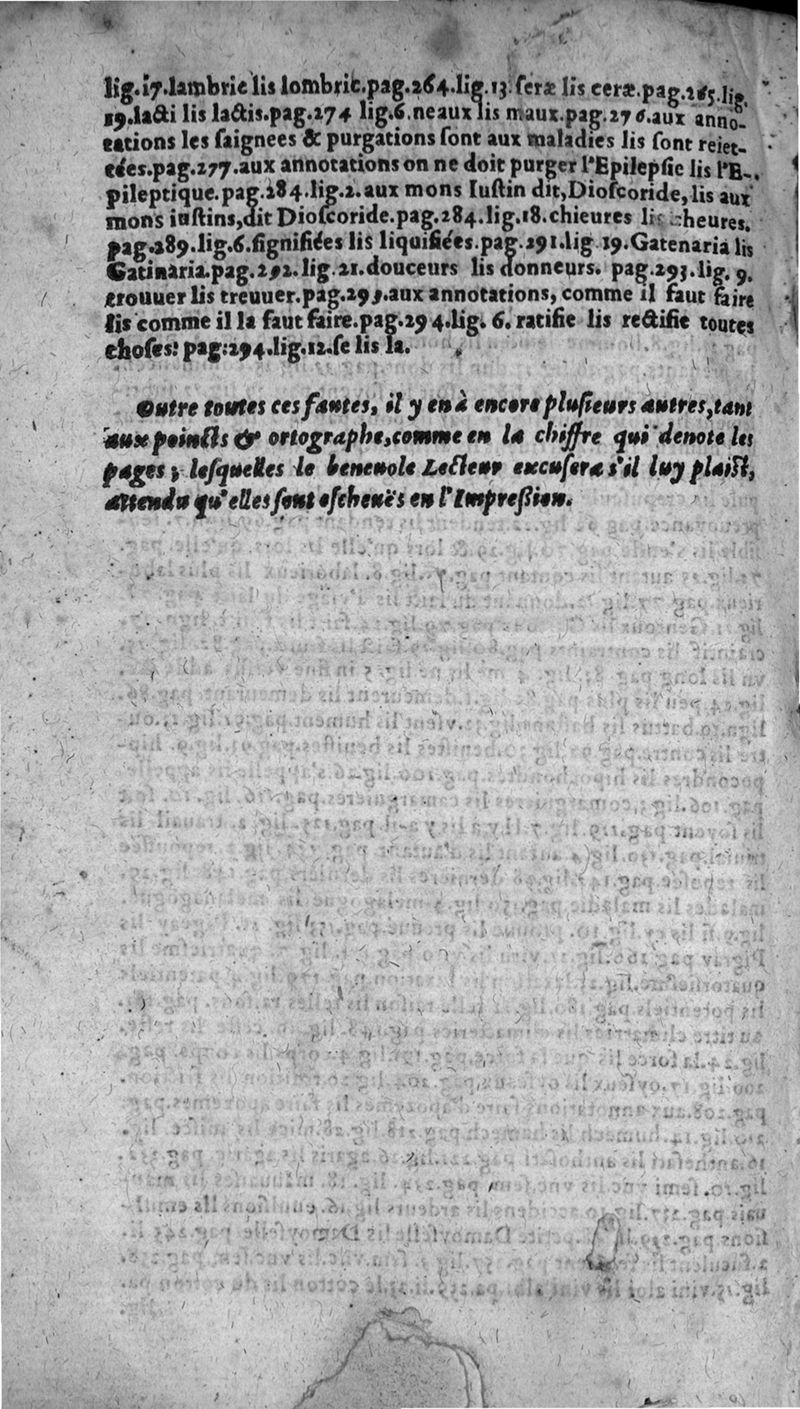 lig.17.lambric lis lombric.pag.264.lig.13. ſeræ lis ceræ.pag.265.lig.
19.lacti lis lactis.pag.274 lig.6.neaux lis maux.pag.276.aux anno-
tations les ſaignees & purgations ſont aux maladies lis ſont reiet-
tées.pag.277.aux annotations on ne doit purger l'Epilepſie lis l'E-
pileptique.pag.284.lig.2.aux mons Iuſtin dit,Dioſcoride,lis aux
mons iuſtins,dit Dioſcoride.pag.284.lig.18.chieures lis cheures.
pag.289.lig.6.ſignifiées lis liquifiées.pag.291.lig 19.Gatenaria lis
Gatinaria.pag.292.lig.21.douceurs lis donneurs. pag.293.lig. 9.
trouuer lis treuuer.pag.293.aux annotations, comme il faut faire
lis comme il la faut faire.pag.294.lig. 6. ratifie lis rectifie toutes
choſes: pag:294.lig.12.ſe lis la.
Outre toutes ces fautes, il y en à encore pluſieurs autres,tant
aux poincts & ortographe,comme en la chiffre qui denote les
pages, leſquelles le beneuole Lecteur excuſera s'il luy plaiſt,
attendu qu'elles ſont eſcheuës en l'Impreſſion.